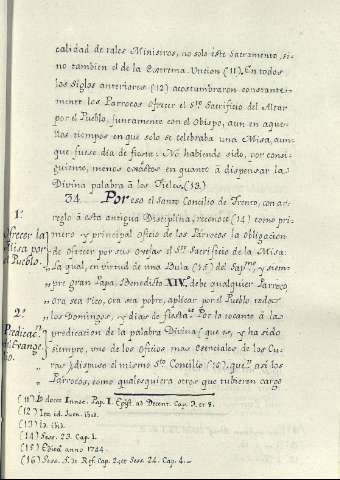 calidad de tales Ministros, no solo este Sacramento, si-
no tambien el de la Extrema Uncion (11). En todos
los siglos anteriores (12) acostumbraron constante-
mente los Parrocos ofrecer el S.to Sacrificio del Altar
por el Pueblo, juntamente con el Obispo, aun en aque-
llos tiempos en que solo se celebraba una Misa, aun-
que fuese dia de fiesta. No habiendo sido, por consi-
guiente, menos en quanto â dispensar la
Divina palabra â los Fieles (13)
34. Por eso el Santo Concilio de Trento, con ar-
reglo â esta antigua Disciplina, reconoce (14) como pri-
mero y principal oficio de los Parrocos la obligacion
de ofrecer por sus ovejas el S.to Sacrificio de la Misa:
La qual, en virtud de una Bula (15) del Sap.mo y siem-
pre gran Papa, Benedicto XIV. debe qualquier Parroco
ora sea rico, ora sea pobre, aplicar por el Pueblo todos
los Domingos, y dias de fiesta. Por lo tocante â la
predicacion de la palabra Divina (que es, y ha sido
siempre, uno de los oficios mas esenciales de los Cu-
ras) dispuso el mismo S.to Concilio (16), que asi los
Parrocos, como qualesquiera otros que tubieren cargo
1.ª
Ofrecer la
Misa por
el Pueblo.
2.ª
Predicac.n
del Evange-
lio.
(11) Id docet Innoc. Pap. I. Epist. ad Decent. Cap. 3. et 8.
(12) Ita id. Juen. ibid.
(13) Id. ibid.
(14) Sess. 23. Cap. 1.
(15) Edita anno 1744.
(16) Sess. 5. de Ref. Cap. 2. et Sess. 24. Cap. 4.